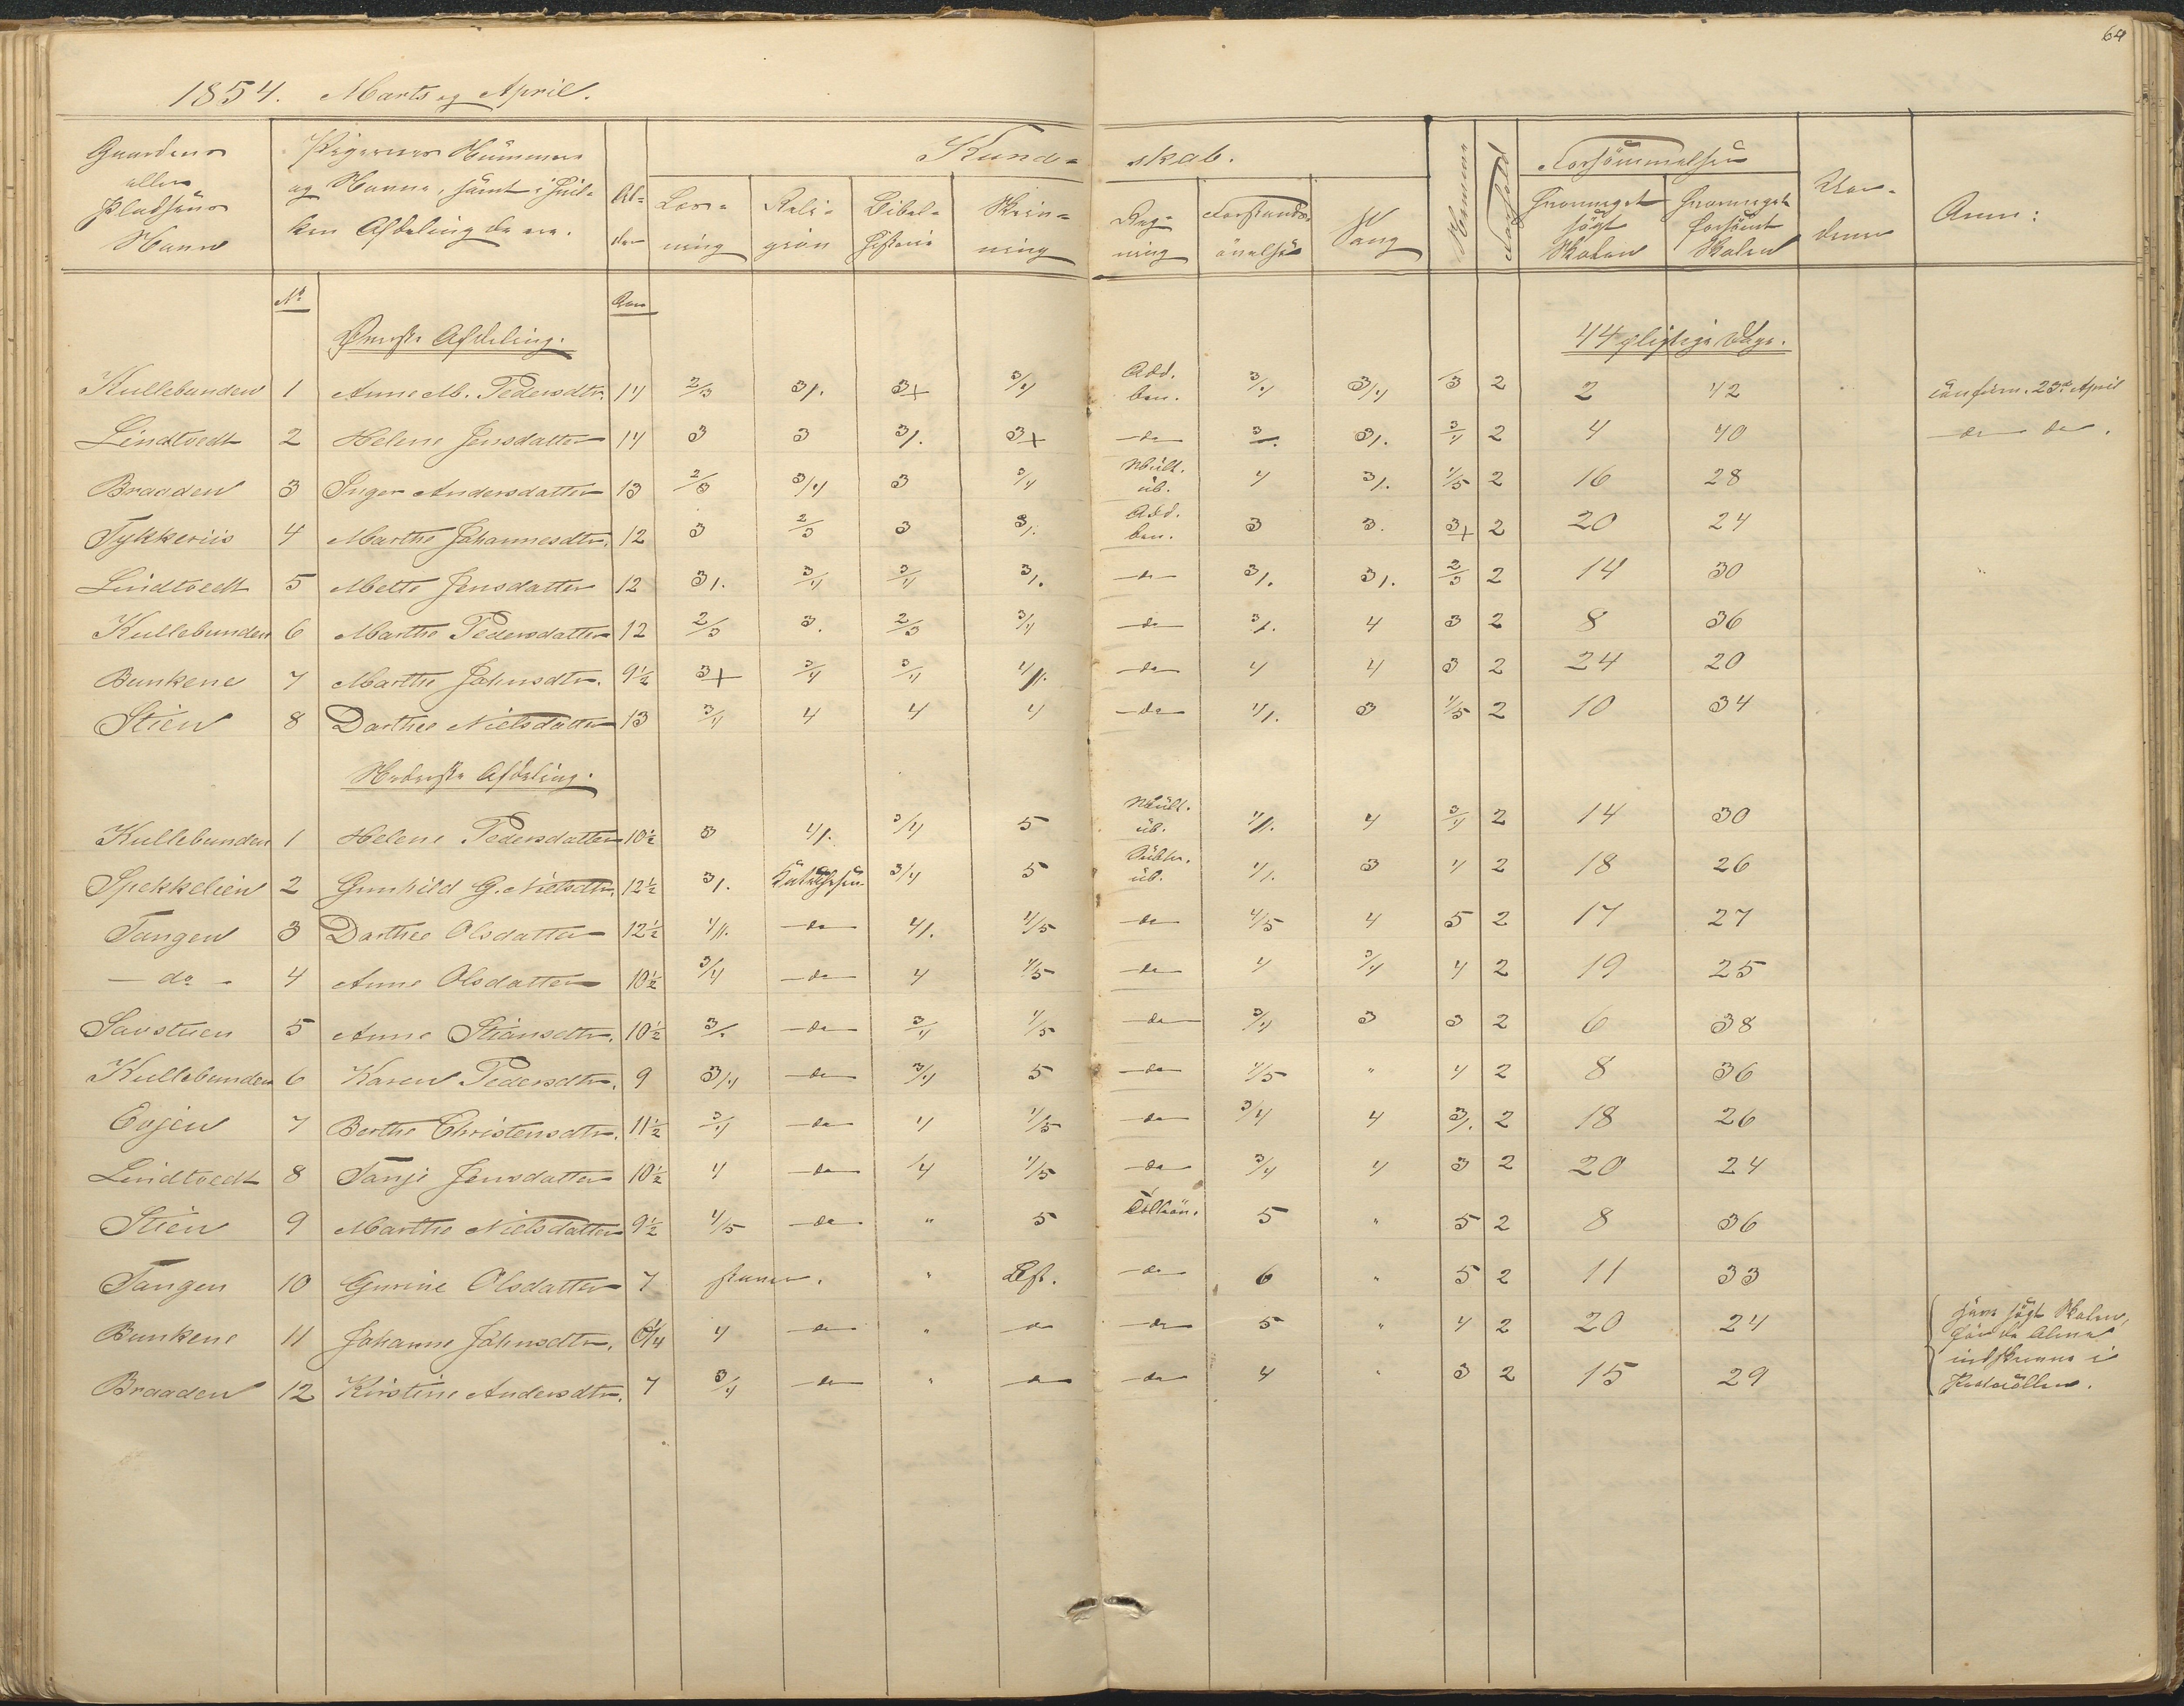 64
1854. Marts og April.
Gaardens eller Pladsens Navn
Pigernes Nummer og Navne, samt i hvilken Afdeling de ere.
Alder
Kundskab.
Læsning Religion Bibelhistorie Skrivning Regning Forstandsøvelse Sang
Nemme
Forhold
Forsømmelser
Hvormeget søgt Skolen Hvormeget forsømt Skolen
Anm:
No Aar
Øverste Afdeling. 44 pligtige Dage.
Kullebunden 1 Anne M. Pedersdtr. 14 2/3 3/. 3+ 3/4 Add. ben. 3/4 3/4 3 2 2 42 confirm. 23de April
Lindtvedt 2 Helene Jensdatter 14 3 3 3/. 3+ do 3/. 3/. 3/4 2 4 40 do do.
Braaden 3 Inger Andersdatter 13 2/3 3/4 3 3/4 Mult. üb. 4 3/. 4/5 2 16 28
Tykkeriis 4 Marthe Johannesdtr. 12 3 2/3 3 3/. Add. ben. 3 3. 3+ 2 20 24
Lindtvedt 5 Mette Jensdatter 12 3/. 3/4 3/4 3/. do 3/. 3/. 2/3 2 14 30
Kullebunden 6 Marthe Pedersdatter 12 2/3 3. 2/3 3/4 do 3/. 4 3 2 8 36
Bunkene 7 Marthe Johnsdtr. 9½ 3+ 3/4 3/4 4/. do 4 4 3 2 24 20
Stien 8 Darthee Nielsdatter 13 3/4 4 4 4 do 4/. 3 4/5 2 10 34
Nederste Afdeling.
Kullebunden 1 Helene Pedersdatter 10½ 3 4/. 3/4 5 Mult. üb. 4/. 4 3/4 2 14 30
Spekkelien 2 Gunhild G. Nielsdtr. 12½ 3/. 3/4 5 Subtr. üb. 4/. 3 4 2 18 26
Tangen 3 Darthee Olsdatter 12½ 4/. do 4/. 4/5 do 4/5 4 5 2 17 27
do 4 Anne Olsdatter 10½ 3/4 do 4 4/5 do 4 3/4 4 2 19 25
Savstuen 5 Anne Stiansdtr. 10½ 3/. do 3/4 4/5 do 3/4 3 3 2 6 38
Kullebunden 6 Karen Pedersdtr. 9 3/4 do 3/4 5 do 4/5 " 4 2 8 36
Evjen 7 Berthe Christensdtr. 11½ 3/4 do 4 4/5 do 3/4 4 3/. 2 18 26
Lindtvedt 8 Tanje Jensdatter 10½ 4 do 4 4/5 do 3/4 4 3 2 20 24
Stien 9 Marthe Nielsdatter 9½ 4/5 do " 5 5 " 5 2 8 36
Tangen 10 Gurine Olsdatter 7 staver. " do 6 " 5 2 11 33
Bunkene 11 Johanne Johnsdtr. 4 do " do do 5 " 4 2 20 24
Braaden 12 Kirstine Andersdtr. 7 3/4 do " do do 4 " 3 2 15 29
have søgt Skolen,
før de bleve
indskrevne i
Protocollen.